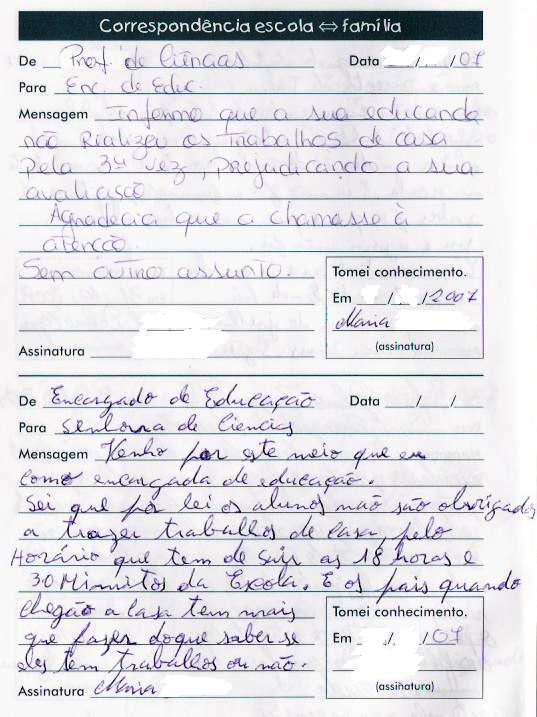 Correspondência escola ⇔ família
De Prof. de Ciências Data / /07
Para Enc. de Educ.
Mensagem Informo que a sua educanda
não Realizou os Trabalhos de casa
Pela 3ª vez, Prejudicando a sua
avaliação
Agradecia que a chamasse à
atenção
Sem outro assunto.
Tomei conhecimento.
Em / /2007
Maria
(assinatura)
Assinatura
De Encargado de Educação Data / /
Para senhora de Ciencias
Mensagem Venho por este meio que eu
como encargada de educação.
Sei que por lei os alunos não são obrigados
a trazer trabalhos de casa, pelo
Horário que tem de sair as 18 horas e
30 Minutos da Escola. E os pais quando
chegão a casa tem mais
que fazer doque saber se
eles tem trabalhos ou não.
Tomei conhecimento.
Em / /07
(assinatura)
Assinatura Maria